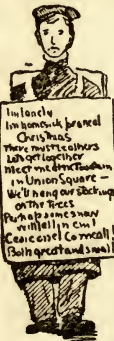 Im lonely
Im homesick
Christmas
There must be others
Lets get together
Meet me at the Fountain
in Union Square —
We'll hang our stockings
on the Trees
Perhaps some snow
will fall in em!
Come one! Come all!
Both great and small!